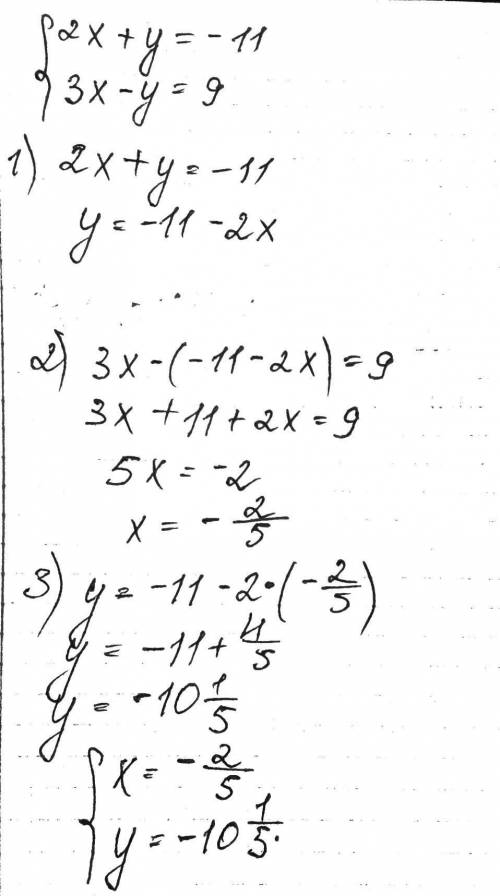 {2x + y = -11
3x - y = 9
1) 2x + y = -11
y = -11 - 2x
2) 3x - (-11 - 2x) = 9
3x + 11 + 2x = 9
5x = -2
x = - 2/5
3) y = -11 - 2 · (- 2/5)
y = -11 + 4/5
y = -10 1/5
{x = - 2/5
y = -10 1/5.